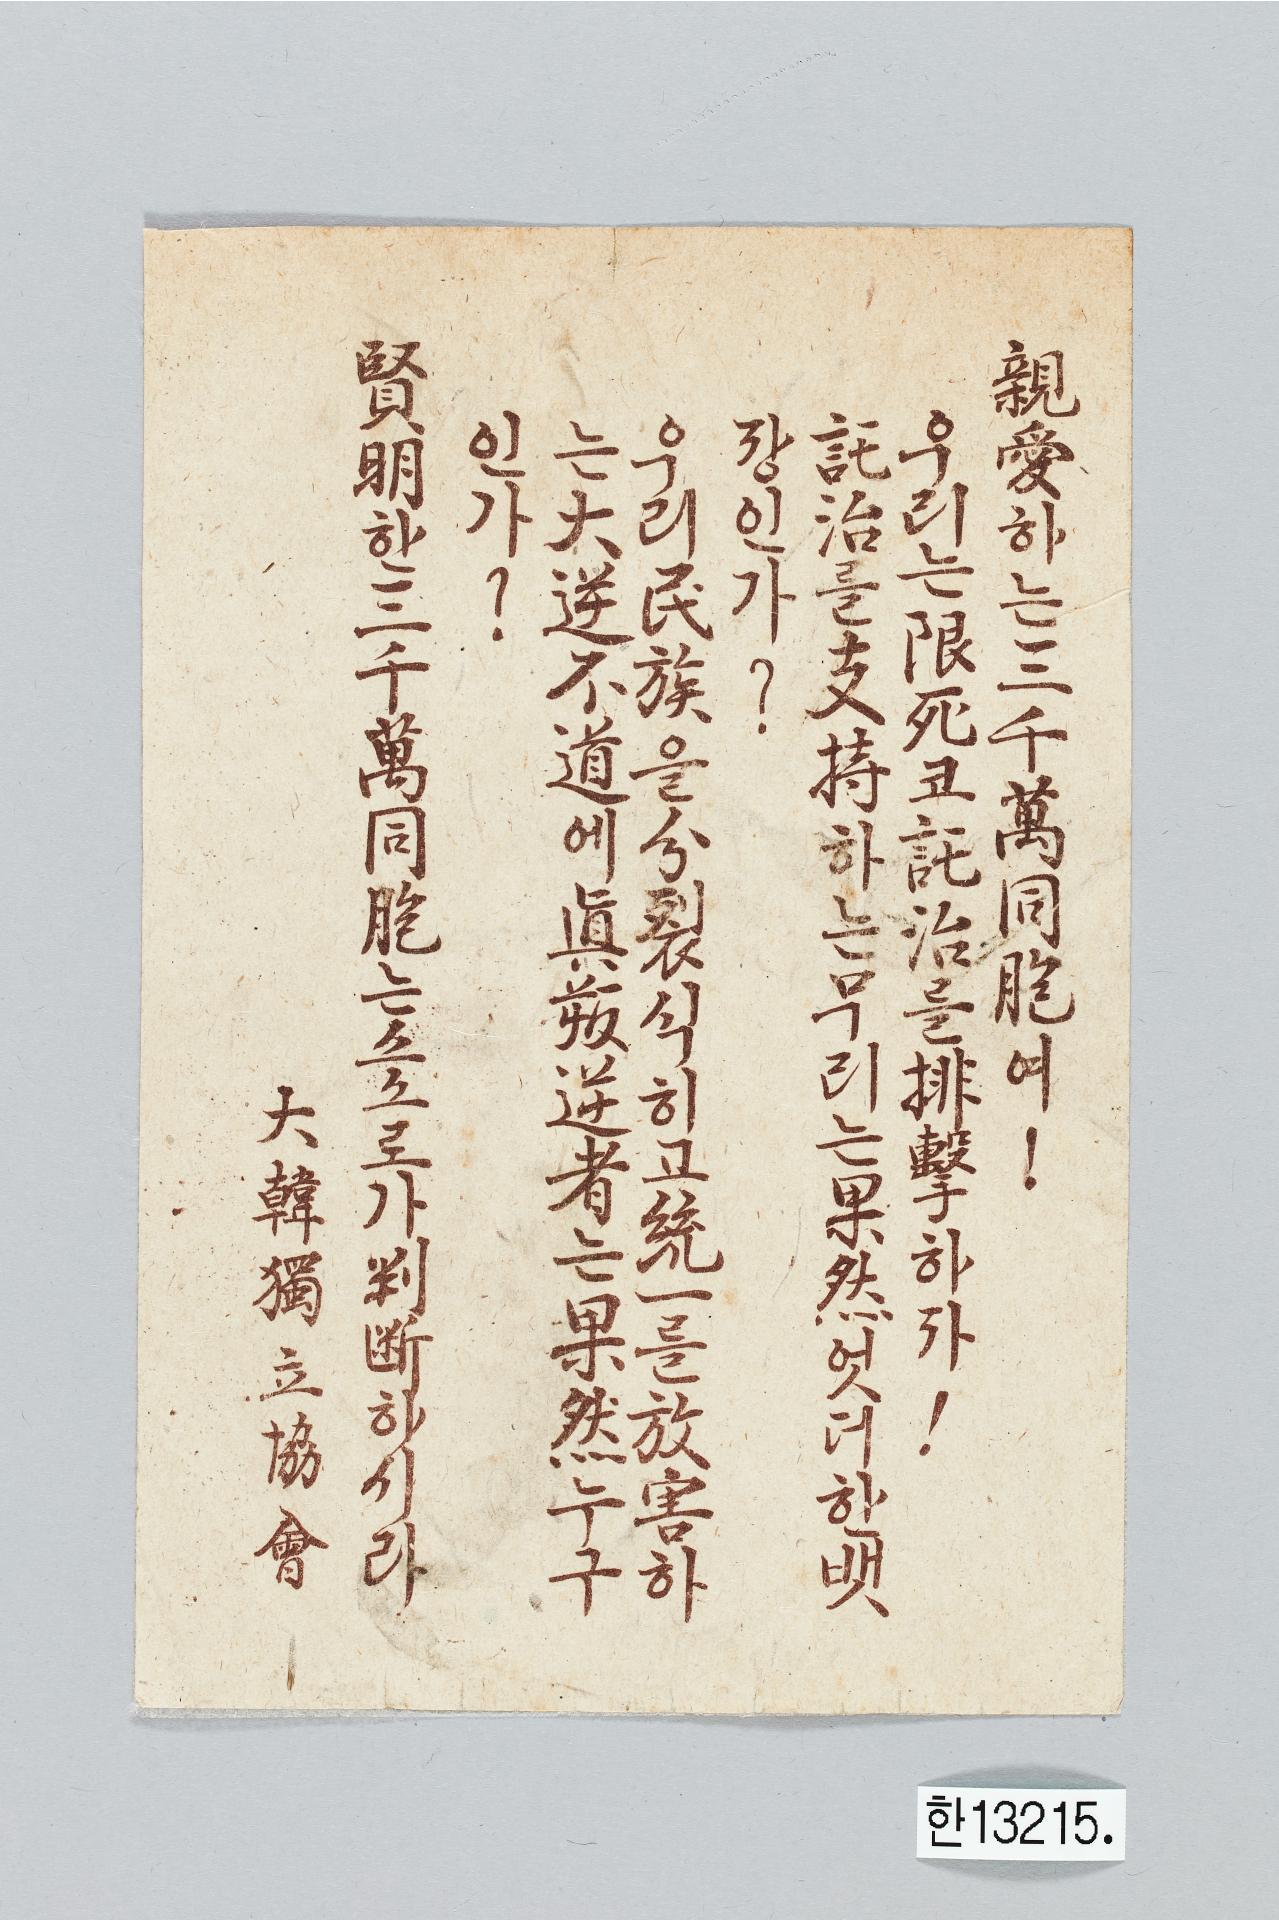 親愛하는三千萬同胞여!
우리는限死코託治를排擊하자!
託治를支持하는무리는果然엇더한뱃
장인가?
우리民族을分裂식히고統一를放害하
는大逆不道에眞叛逆者는果然누구
인가?
賢明한三千萬同胞는스스로가判断하시라
大韓獨立協會
한13215.